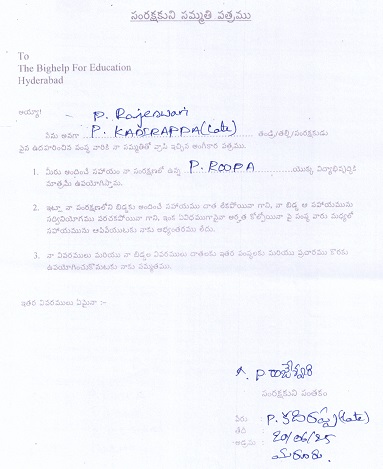 సంరక్షకుని సమ్మతి పత్రము
To
The Bighelp For Education
Hyderabad
అయ్యా!
P. Rajeswari
నేను అనగా P. KADIRAPPA (Late) తండ్రి/తల్లి/సంరక్షకుడు
పైన ఉదహరించిన సంస్థ వారికి నా సమ్మతితో వ్రాసి ఇచ్చిన అంగీకార పత్రము.
1. మీరు అందించే సహాయం నా సంరక్షణలో ఉన్న P. ROOPA యొక్క విద్యాభివృద్ధికి
మాత్రమే ఉపయోగిస్తాము.
2. ఇట్లు నా సంరక్షణలోని బిడ్డకు అందించే సహాయము చాత లేకపోయినా గాని, నా బిడ్డ ఆ సహాయమును
సద్వినియోగము పరచకపోయినా గాని, ఇంక ఏవిధముగానైనా అర్హత కోల్పోయినా పై సంస్థ వారు మధ్యలో
సహాయమును ఆపివేయుటకు నాకు అభ్యంతరము లేదు.
3. నా వివరములు మరియు నా బిడ్డల వివరములు దాతలకు ఇతర సంస్థలకు మరియు ప్రచారము కొరకు
ఉపయోగించుకొనుటకు నాకు సమ్మతము.
ఇతర వివరములు ఏమైనా :-
P రాజేశ్వరి
సంరక్షకుని సంతకం
పేరు : P. కదిరప్ప (Late)
తేది : 20/06/25
అడ్రసు :